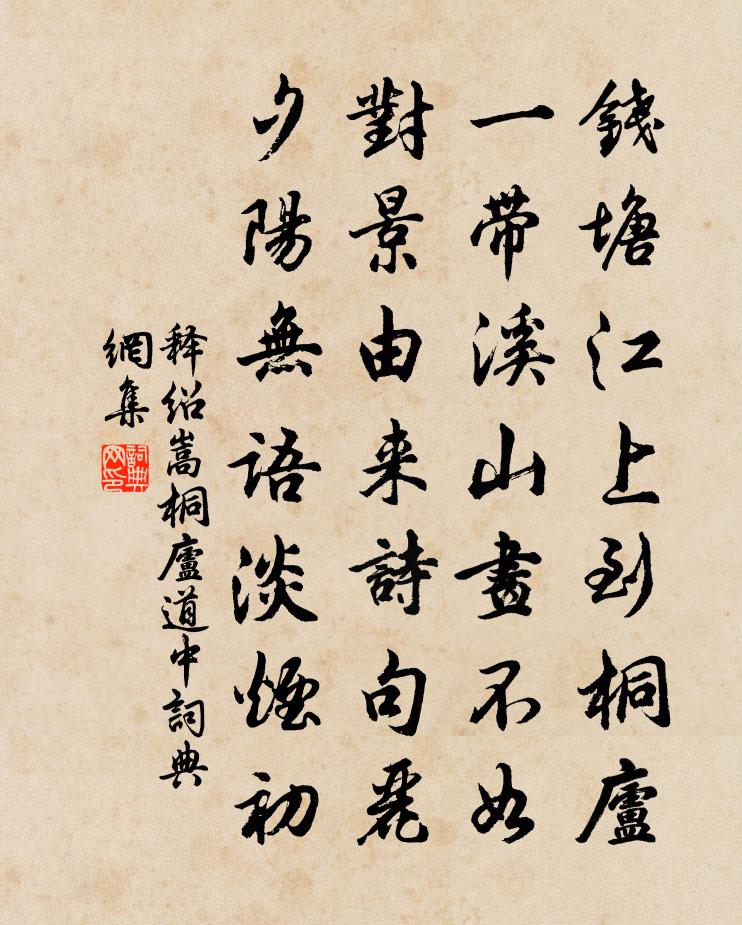 錢塘江上到桐廬
一帶溪山畫不如
對景由來詩句麗
夕陽無語淡煙初
释绍嵩桐廬道中詞典
網集
詞典
网印